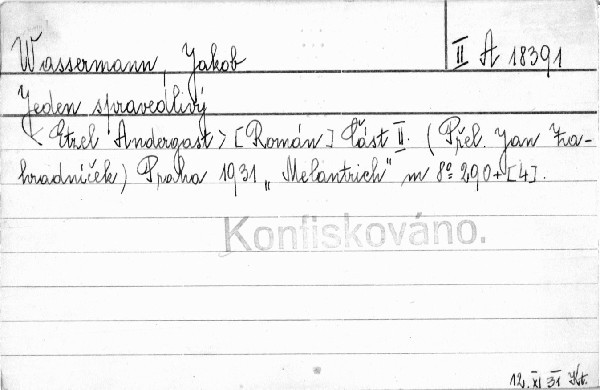 Wassermann, Jakob
II A 18391
Jeden spravedlivý
< Etzel Andergast > [Román] Část II. (Přel. Jan Za-
hradníček) Praha 1931 „Melantrich" m 8° 290+[4].
Konfiskováno.
12. XI 31 Kt.